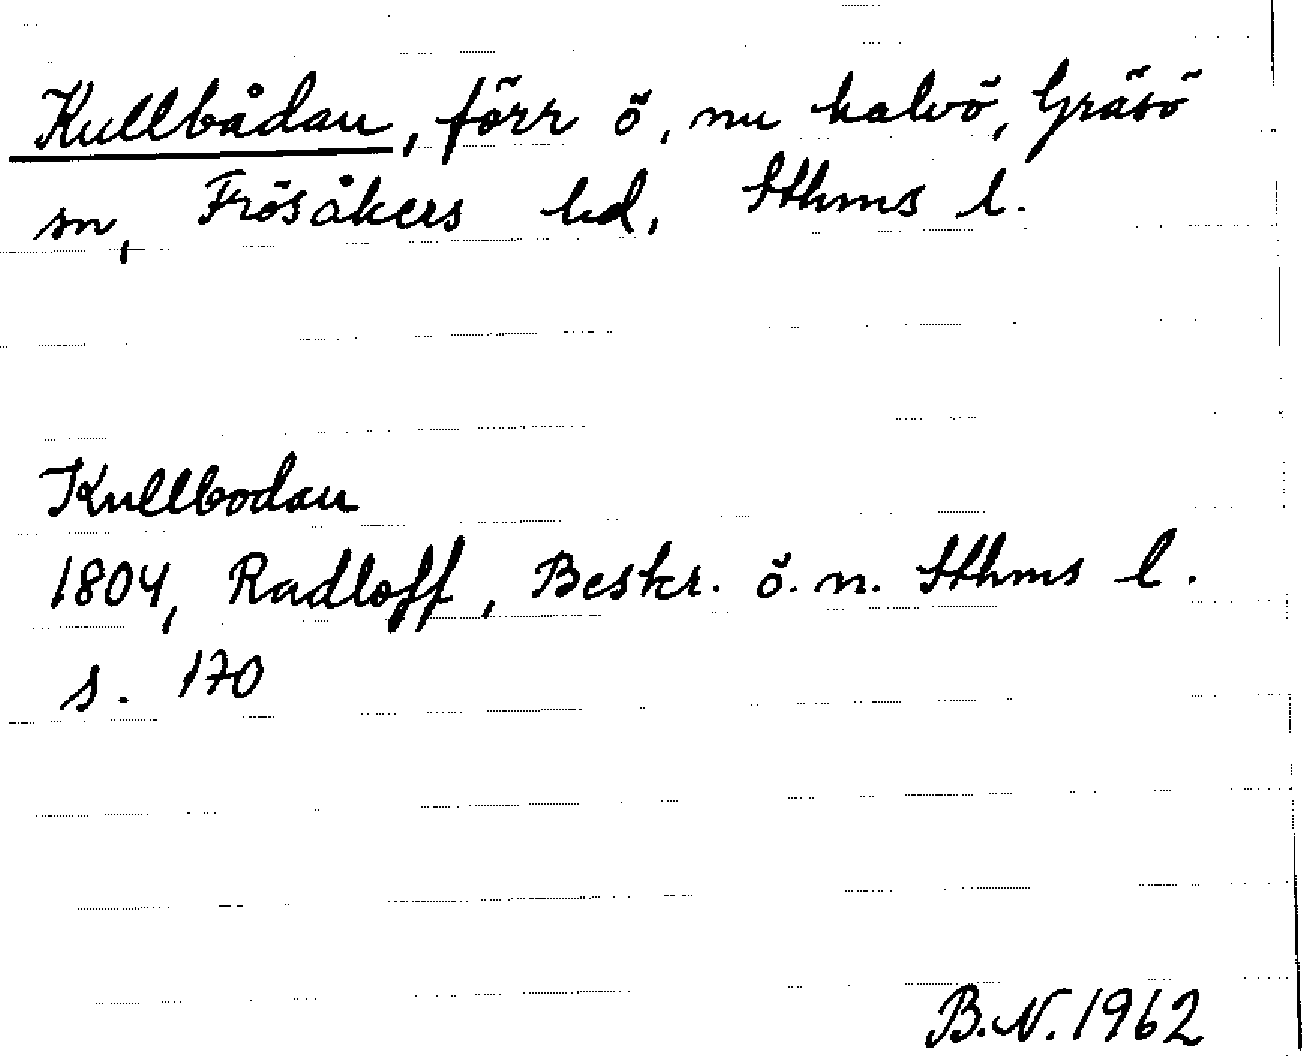 Kullbådan, förr ö, nu halvö, Gräsö
sn, Frösåkers hd, Sthms l.
Kullbodan
1804, Radloff, Beskr. ö. n. Sthms l.
s. 170
B.N. 1962